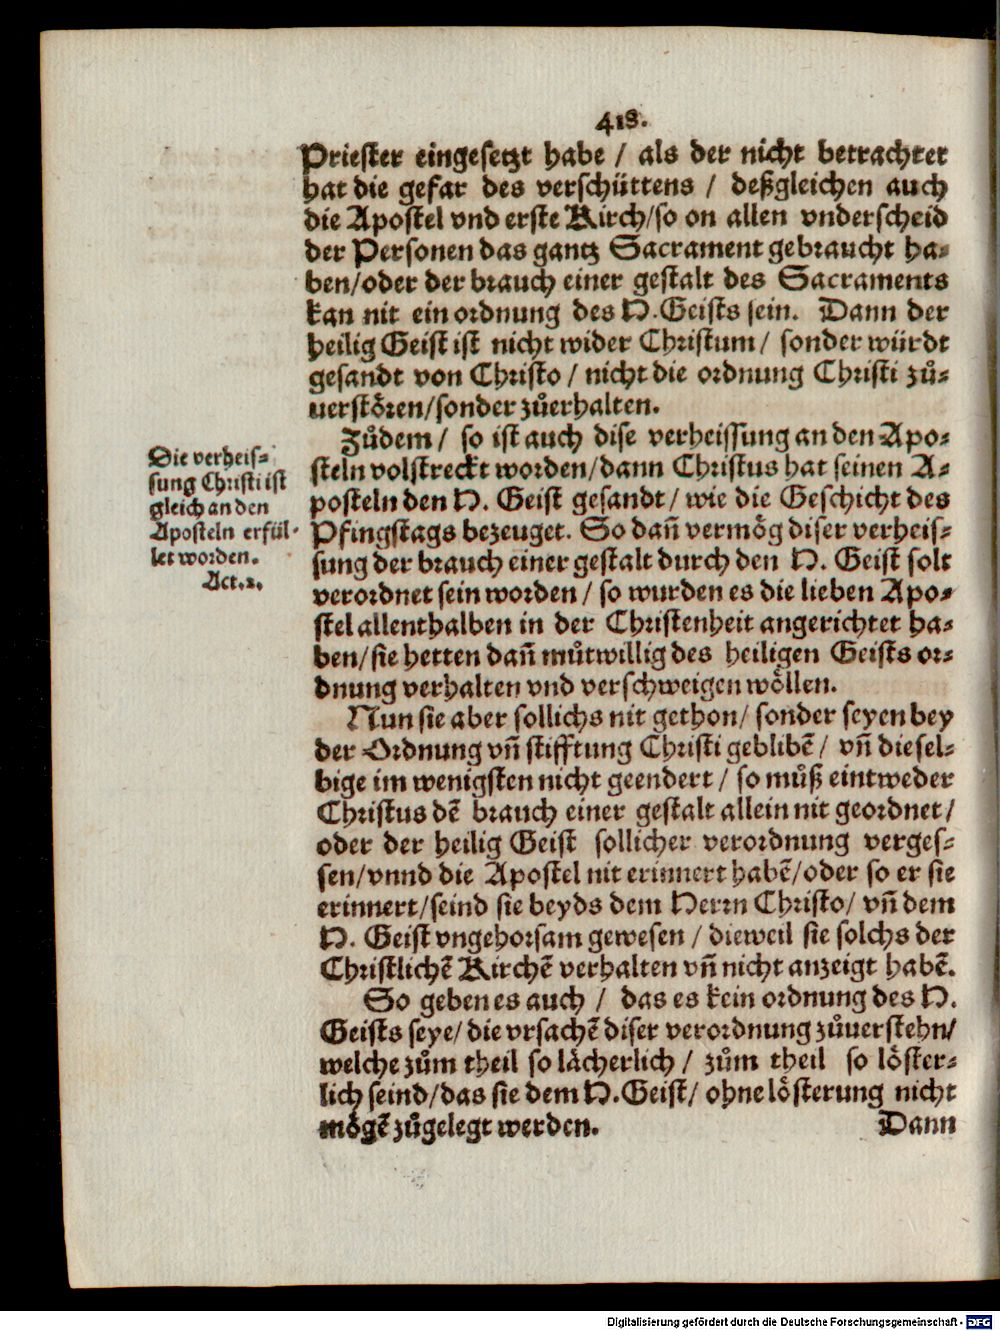 418.
Priester eingesetzt habe / als der nicht betrachtet
hat die gefar des verschüttens / deßgleichen auch
die Apostel vnd erste Kirch/so on allen vnderscheid
der Personen das gantz Sacrament gebraucht ha-
ben/oder der brauch einer gestalt des Sacraments
kan nit ein ordnung des H.Geists sein. Dann der
heilig Geist ist nicht wider Christum/ sonder würdt
gesandt von Christo / nicht die ordnung Christi zů-
uerstören/sonder zůerhalten.
Zůdem / so ist auch dise verheissung an den Apo-
steln volstreckt worden/dann Christus hat seinen A-
posteln den H. Geist gesandt/ wie die Geschicht des
Pfingstags bezeuget. So dañ vermög diser verheis-
sung der brauch einer gestalt durch den H. Geist solt
verordnet sein worden/ so wurden es die lieben Apo-
stel allenthalben in der Christenheit angerichtet ha-
ben/sie hetten dañ můtwillig des heiligen Geists or-
dnung verhalten vnd verschweigen wöllen.
Die verheis-
sung Christi ist
gleich an den
Aposteln erfül-
let worden.
Act.2.
Nun sie aber sollichs nit gethon/ sonder seyen bey
der Ordnung vñ stifftung Christi geblibẽ/ vñ diesel-
bige im wenigsten nicht geendert / so můß eintweder
Christus dẽ brauch einer gestalt allein nit geordnet/
oder der heilig Geist sollicher verordnung verges-
sen/vnnd die Apostel nit erinnert habẽ/oder so er sie
erinnert/seind sie beyds dem Herrn Christo/ vñ dem
H. Geist vngehorsam gewesen / dieweil sie solchs der
Christlichẽ Kirchẽ verhalten vñ nicht anzeigt habẽ.
So geben es auch / das es kein ordnung des H.
Geists seye/ die vrsachẽ diser verordnung zůuerstehn/
welche zům theil so lächerlich / zům theil so löster-
lich seind/das sie dem H.Geist/ ohne lösterung nicht
mögẽ zůgelegt werden.
Dann
Digitalisierung gefördert durch die Deutsche Forschungsgemeinschaft - DFG